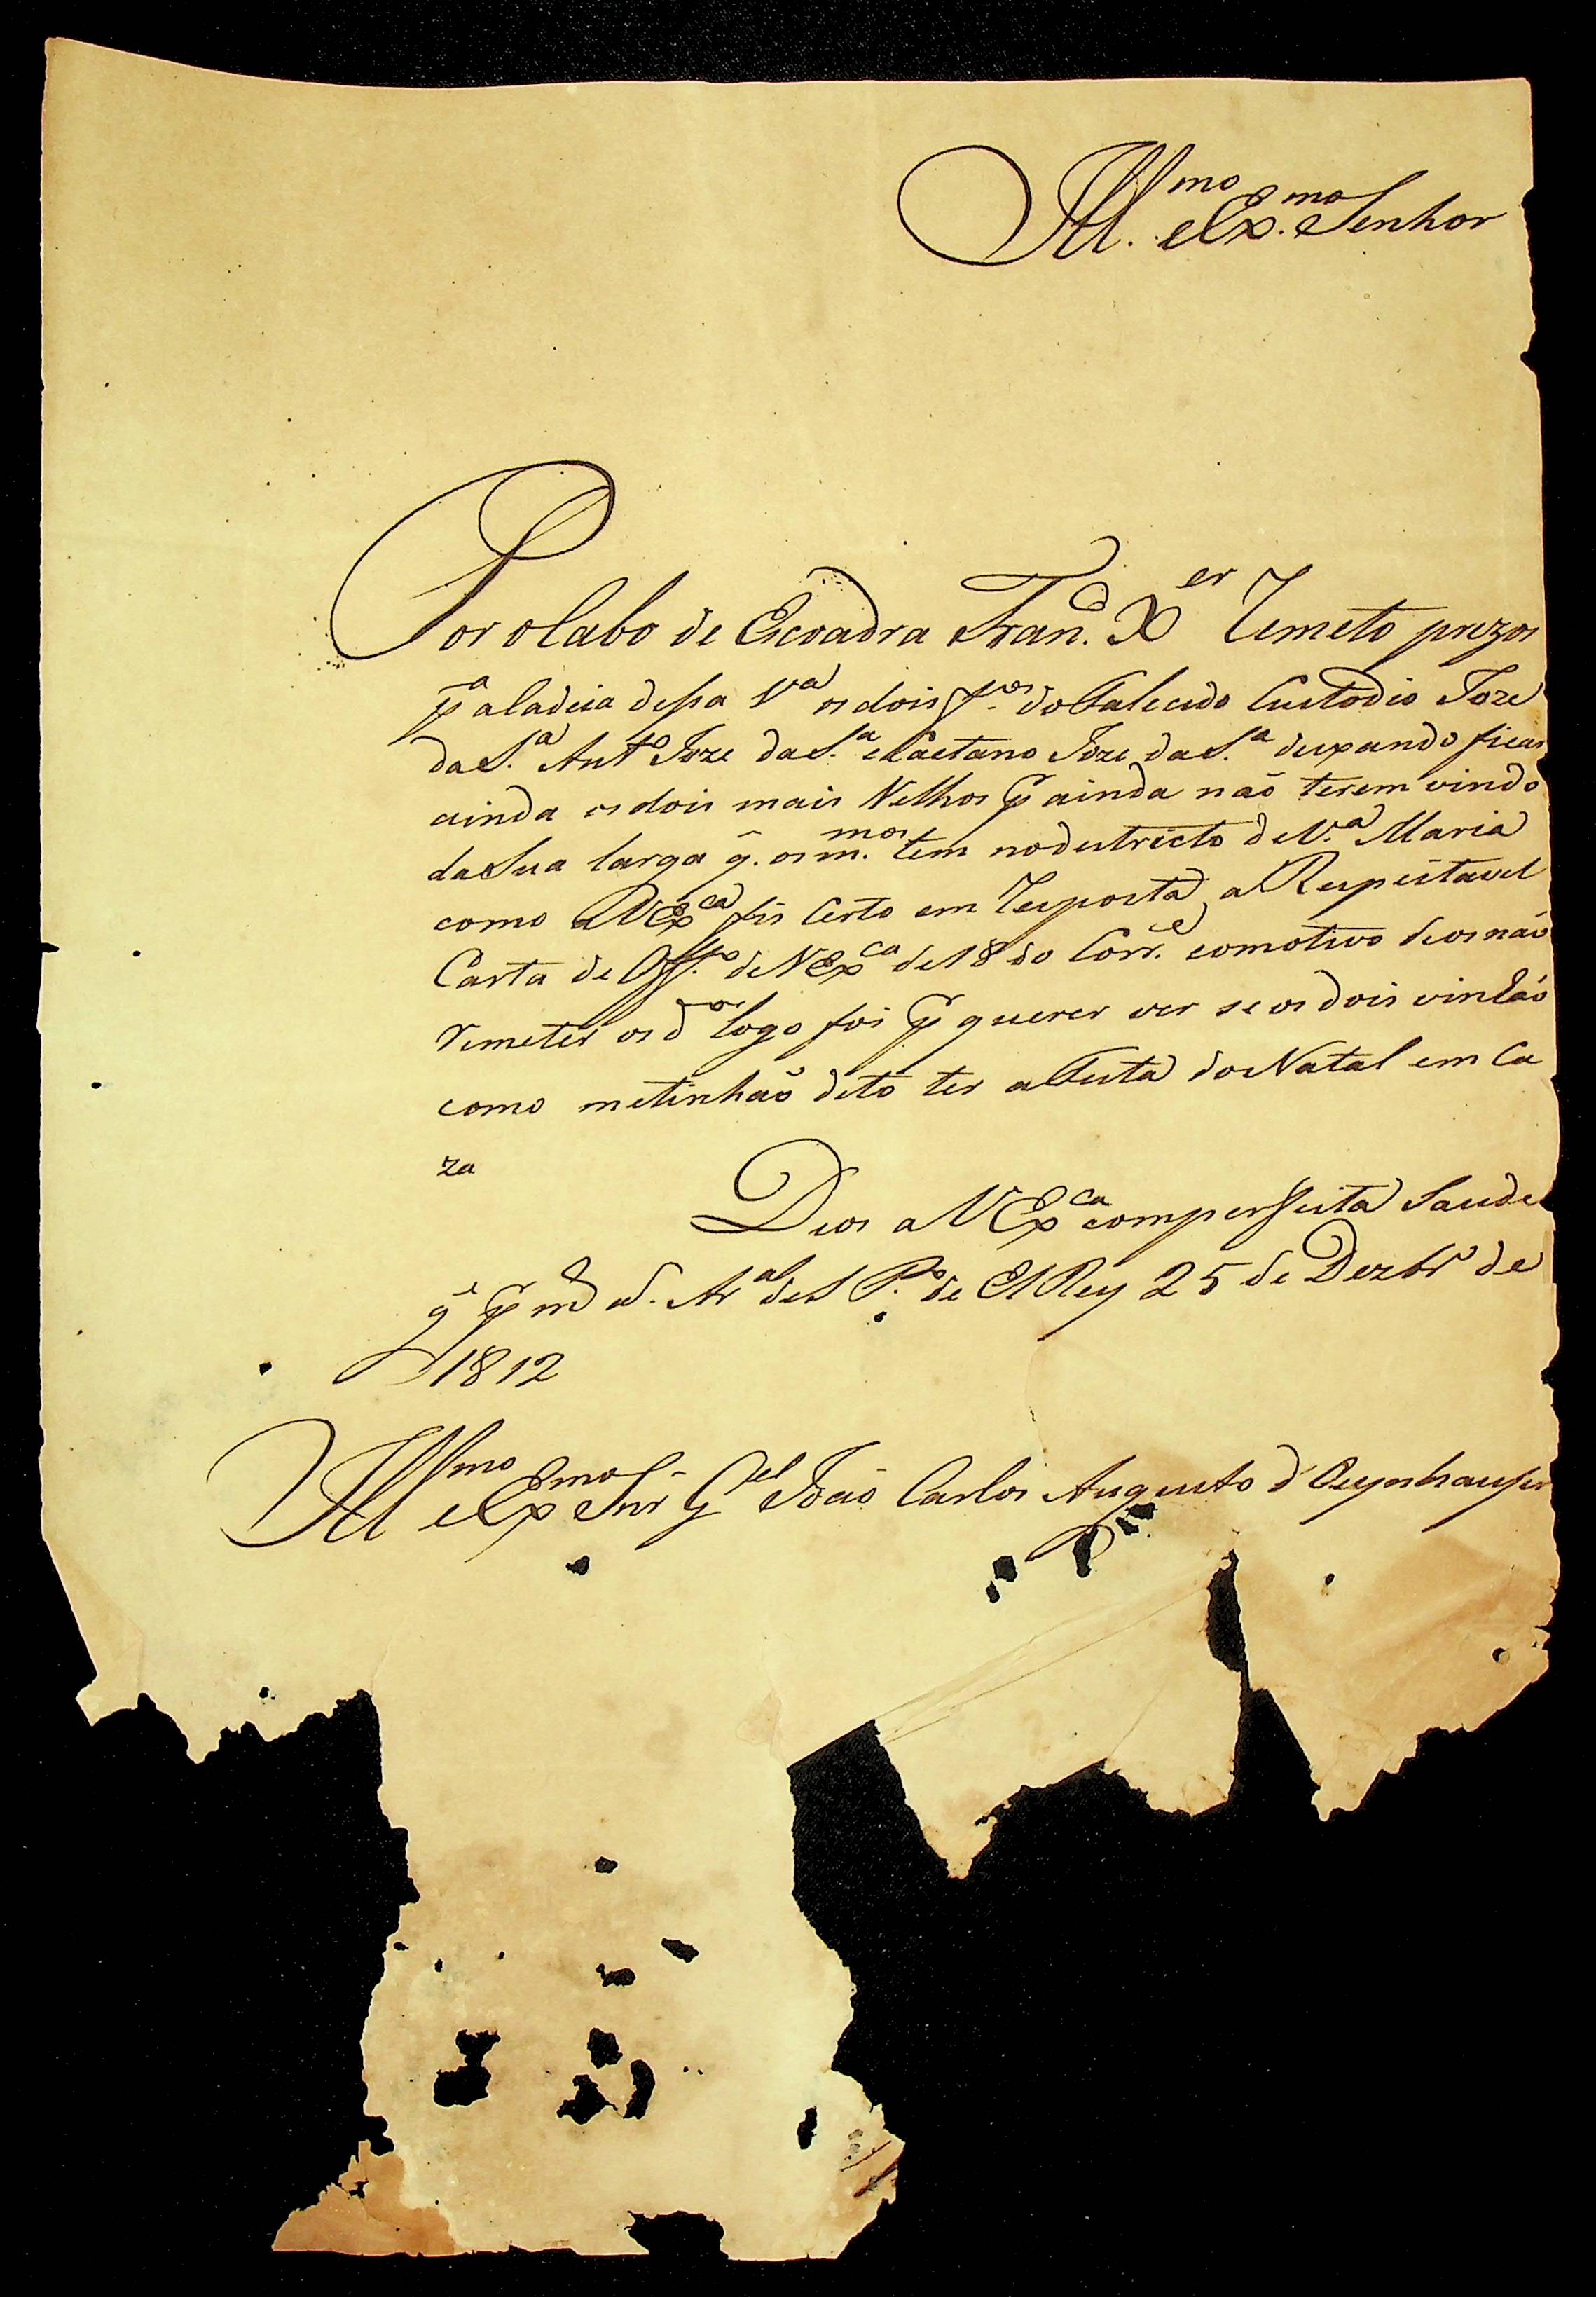 Ill.mo e Ex.mo Senhor
Por o Cabo de Escoadra Fran.co X.er Remeto prezos
p.a a Cadeia desta V.a os dois f.os do Falecido Custodio Joze
da S.a Ant.o Joze da S.a e Caetano Joze da S.a deixando ficar
ainda os dois mais Velhos p ainda não terem vindo
da Sua larga q. os m.mos tem no destricto de V.a Maria
como a V Ex.ca fis Certo em Resposta a Respeitavel
Carta de Off.o de V Ex.ca de 18 do Corr.e e o motivo de os não
remeter os d.os logo foi p querer ver se os dois vinhão
como me tinhão dito ter a Festa do Natal em Ca
za
Deos a V Ex.ca com perfeita Saude
g.e p m.s a. Ar.al de S P.o de El Rey 25 de Dezbr.o de
1812
Ill.mo e Ex.mo Snr G.el João Carlos Augusto d'Oeynhausen